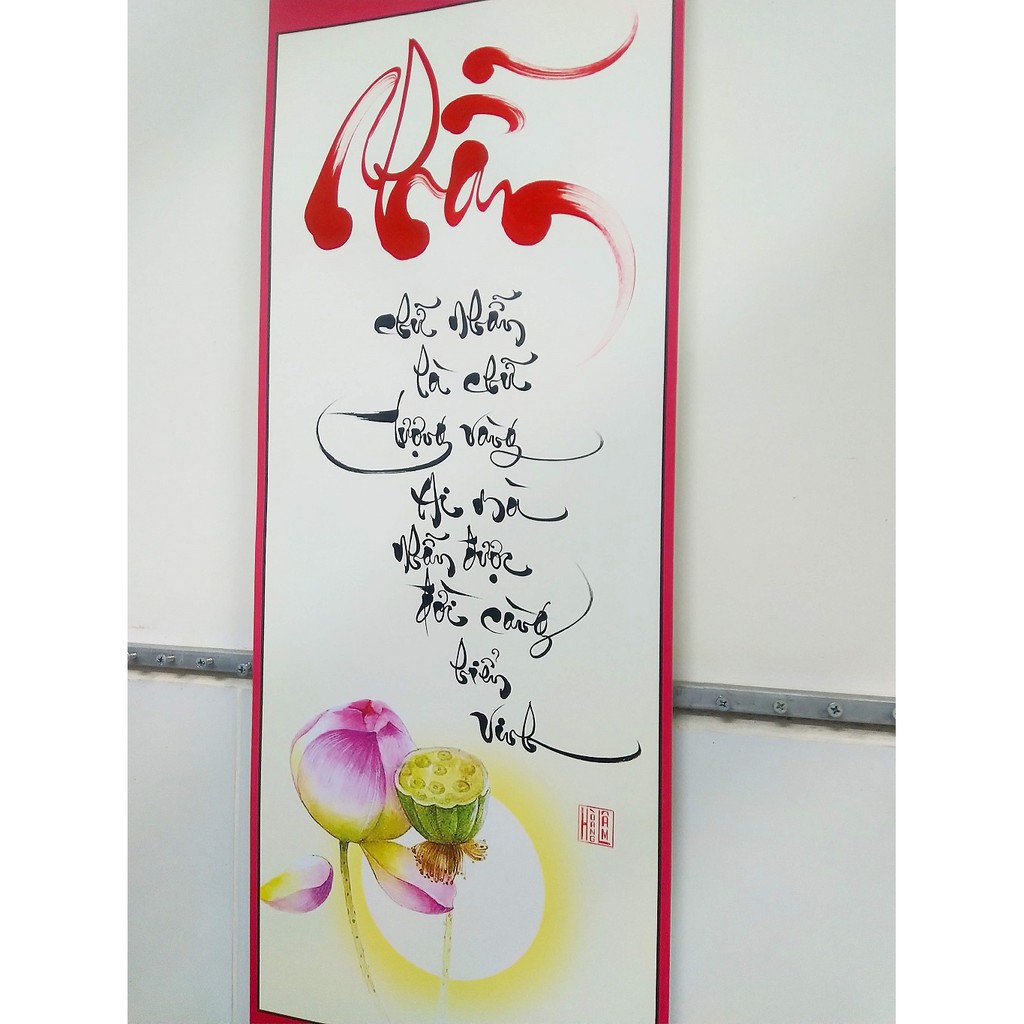 Nhẫn
chữ Nhẫn
là chữ
tượng vàng
Ai mà
Nhẫn được
đời càng
hiển
Vinh
HOÀNG LÂM